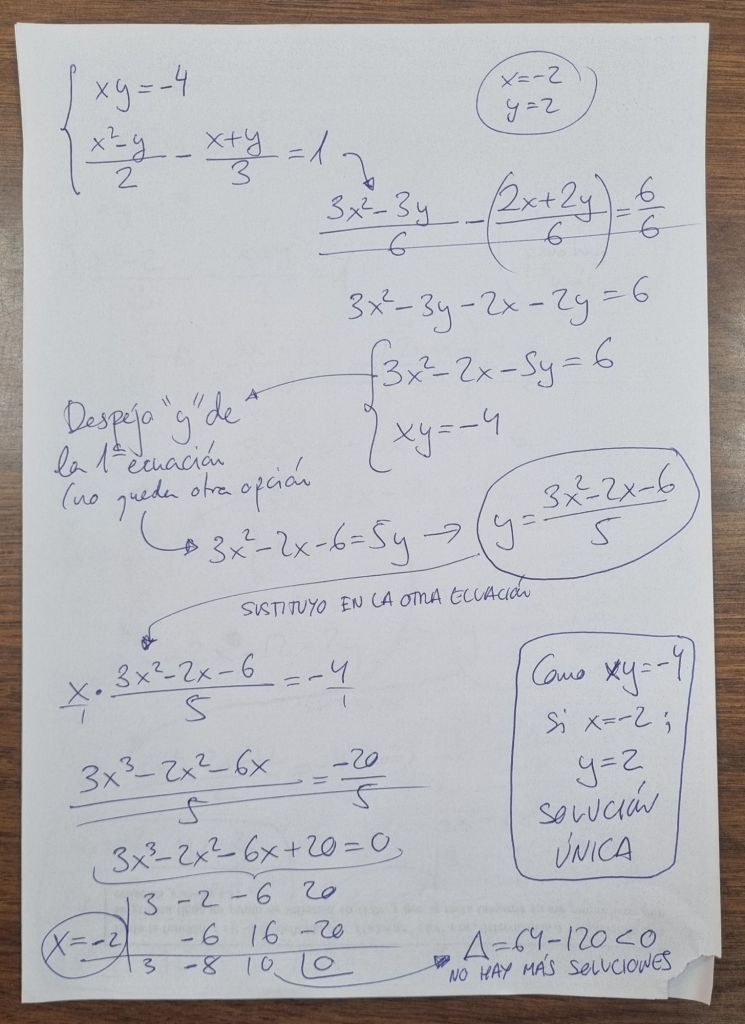 xy = -4
(x² - y)/2 - (x + y)/3 = 1
x = -2
y = 2
(3x² - 3y)/6 - ((2x + 2y)/6) = 6/6
3x² - 3y - 2x - 2y = 6
3x² - 2x - 5y = 6
xy = -4
Despejo "y" de
la 1ª ecuación
(no queda otra opción
3x² - 2x - 6 = 5y → y = (3x² - 2x - 6)/5
SUSTITUYO EN LA OTRA ECUACIÓN
x/1 · (3x² - 2x - 6)/5 = -4/1
(3x³ - 2x² - 6x)/5 = -20/5
3x³ - 2x² - 6x + 20 = 0
3 -2 -6 20
x = -2 | -6 16 -20
3 -8 10 |0
Δ = 64 - 120 < 0
NO HAY MÁS SOLUCIONES
Como xy = -4
Si x = -2 ;
y = 2
SOLUCIÓN
ÚNICA